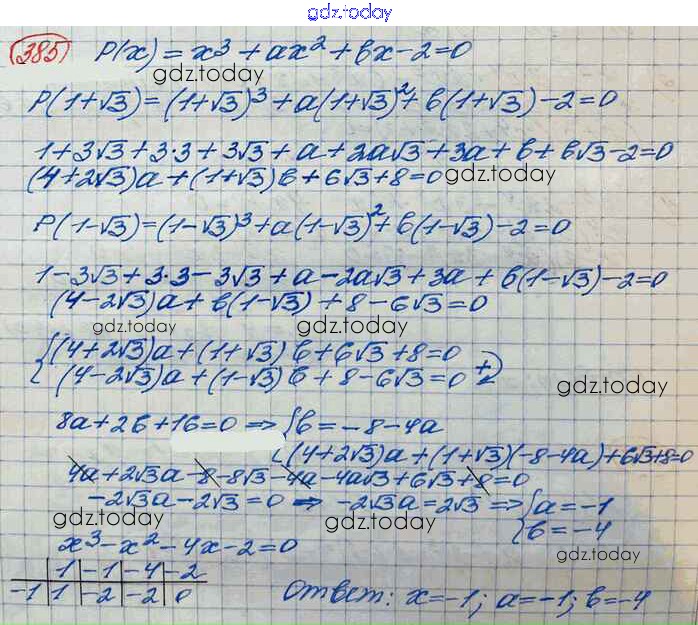 gdz.today
385 P(x) = x³ + ax² + bx - 2 = 0
gdz.today
P(1+√3) = (1+√3)³ + a(1+√3)² + b(1+√3) - 2 = 0
1 + 3√3 + 3·3 + 3√3 + a + 2a√3 + 3a + b + b√3 - 2 = 0
(4+2√3)a + (1+√3)b + 6√3 + 8 = 0 gdz.today
P(1-√3) = (1-√3)³ + a(1-√3)² + b(1-√3) - 2 = 0
1 - 3√3 + 3·3 - 3√3 + a - 2a√3 + 3a + b(1-√3) - 2 = 0
(4-2√3)a + b(1-√3) + 8 - 6√3 = 0
gdz.today gdz.today
{(4+2√3)a + (1+√3)b + 6√3 + 8 = 0
(4-2√3)a + (1-√3)b + 8 - 6√3 = 0 +
gdz.today
8a + 2b + 16 = 0 => {b = -8 - 4a
(4+2√3)a + (1+√3)(-8-4a) + 6√3 + 8 = 0
4a + 2√3a - 8 - 8√3 - 4a - 4a√3 + 6√3 + 8 = 0
-2√3a - 2√3 = 0 => -2√3a = 2√3 => {a = -1
b = -4
gdz.today gdz.today
x³ - x² - 4x - 2 = 0
gdz.today
1 -1 -4 -2
-1 1 -2 -2 0
Ответ: x = -1; a = -1; b = -4